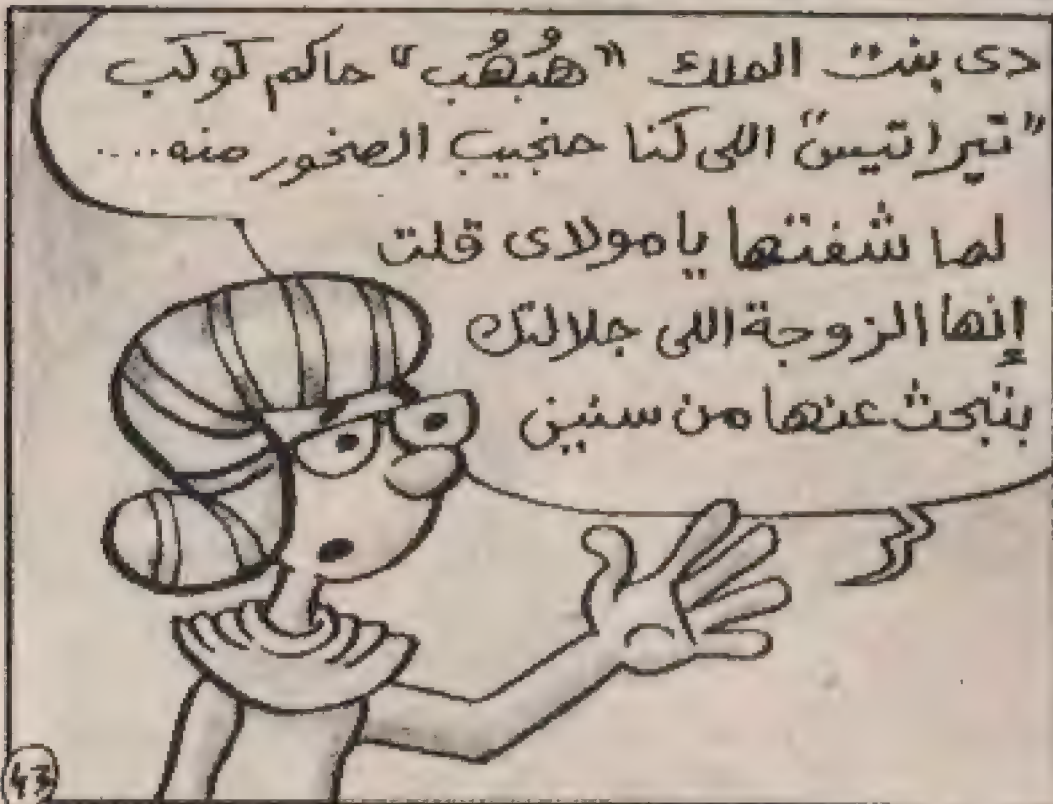 دى بنت الملك "هُبهُب" حاكم كوكب
"تيراتيس" اللى كنا حنجيب الصخور منه....
لما شفتها يا مولاى قلت
إنها الزوجة اللى جلالتك
بتبحث عنها من سنين
43